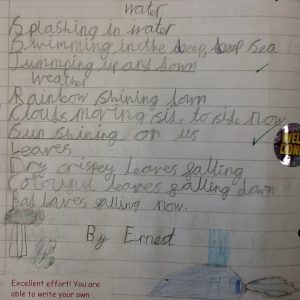 water
Splashing in water
Swimming in the deep, deep sea
Jumping up and down
weather
Rainbow shining down
Clouds moving side to side now
Sun shining on us
Leaves
Dry crispey leaves falling
Colourful leaves falling down
leaves falling now.
By Ernest
WELL DONE
Excellent effort! You are
able to write your own